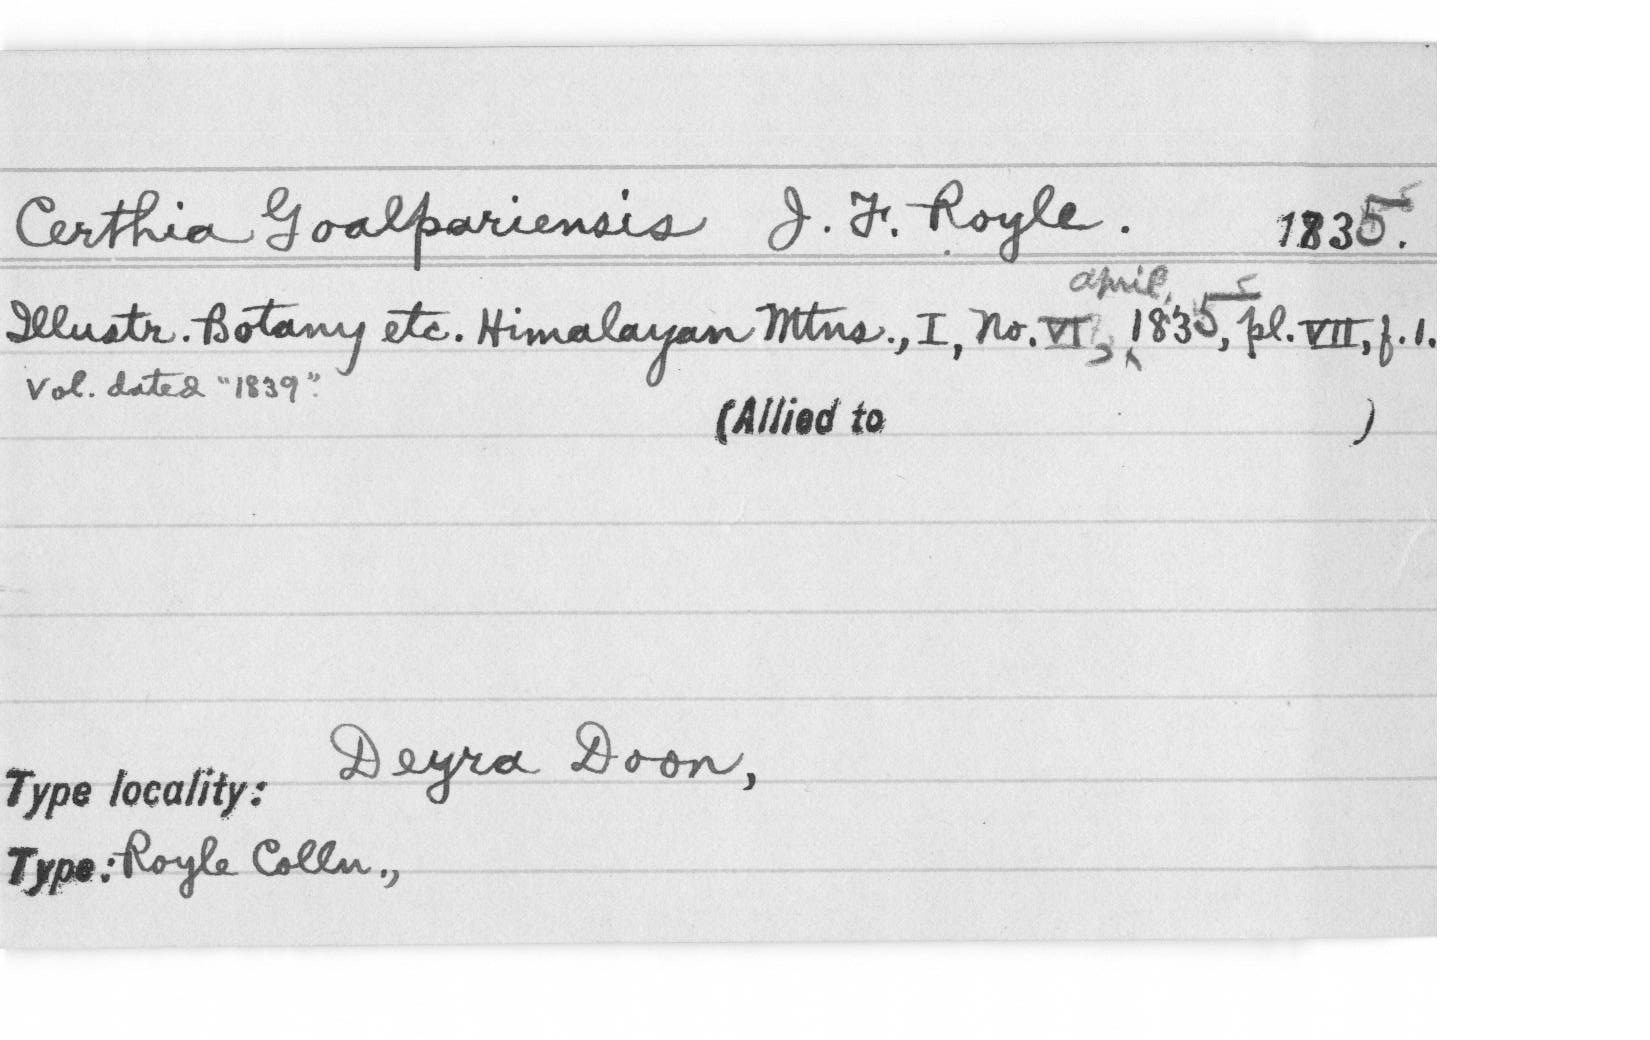 Certhia Goalpariensis J. F. Royle. 1835.
Illustr. Botany etc. Himalayan Mtns., I, No. VI, April, 1835, pl. VII, f.1.
Vol. dated "1839".
(Allied to )
Type locality: Deyra Doon,
Type: Royle Colln.,